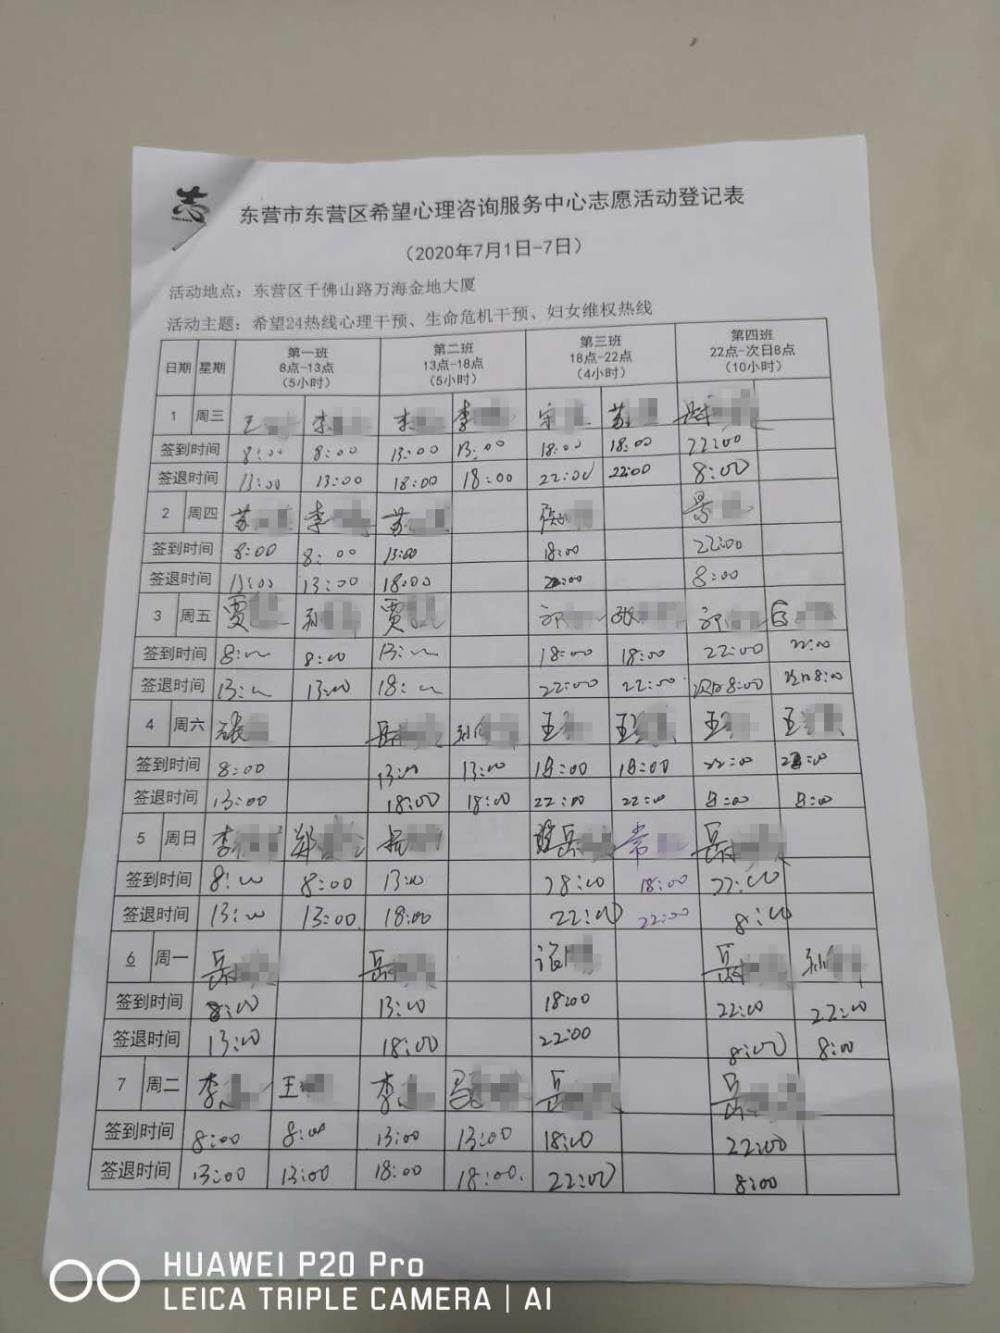 志
东营市东营区希望心理咨询服务中心志愿活动登记表
（2020年7月1日-7日）
活动地点：东营区千佛山路万海金地大厦
活动主题：希望24热线心理干预、生命危机干预、妇女维权热线
日期 星期 第一班 8点-13点 （5小时） 第二班 13点-18点 （5小时） 第三班 18点-22点 （4小时） 第四班 22点-次日8点 （10小时）
1 周三 王 李 李 李 宋 苏
签到时间 8:00 8:00 13:00 13:00 18:00 18:00 22:00
签退时间 13:00 13:00 18:00 18:00 22:00 22:00 8:00
2 周四 苏 李 苏 张 景
签到时间 8:00 8:00 13:00 18:00 22:00
签退时间 13:00 13:00 18:00 22:00 8:00
3 周五 贾 孙 贾 郭 张 郭
签到时间 8:00 8:00 13:00 18:00 18:00 22:00 22:00
签退时间 13:00 13:00 18:00 22:00 22:00 次日8:00 次日8:00
4 周六 张 岳 孙 王 王 王 王
签到时间 8:00 13:00 13:00 18:00 18:00 22:00 22:00
签退时间 13:00 18:00 18:00 22:00 22:00 8:00 8:00
5 周日 李 郑 岳 常 岳
签到时间 8:00 8:00 13:00 18:00 18:00 22:00
签退时间 13:00 13:00 18:00 22:00 22:00 8:00
6 周一 岳 岳 岳 孙
签到时间 8:00 13:00 18:00 22:00 22:00
签退时间 13:00 18:00 22:00 8:00 8:00
7 周二 李 王 李 马 岳 岳
签到时间 8:00 8:00 13:00 13:00 18:00 22:00
签退时间 13:00 13:00 18:00 18:00. 22:00 8:00
HUAWEI P20 Pro
LEICA TRIPLE CAMERA | AI